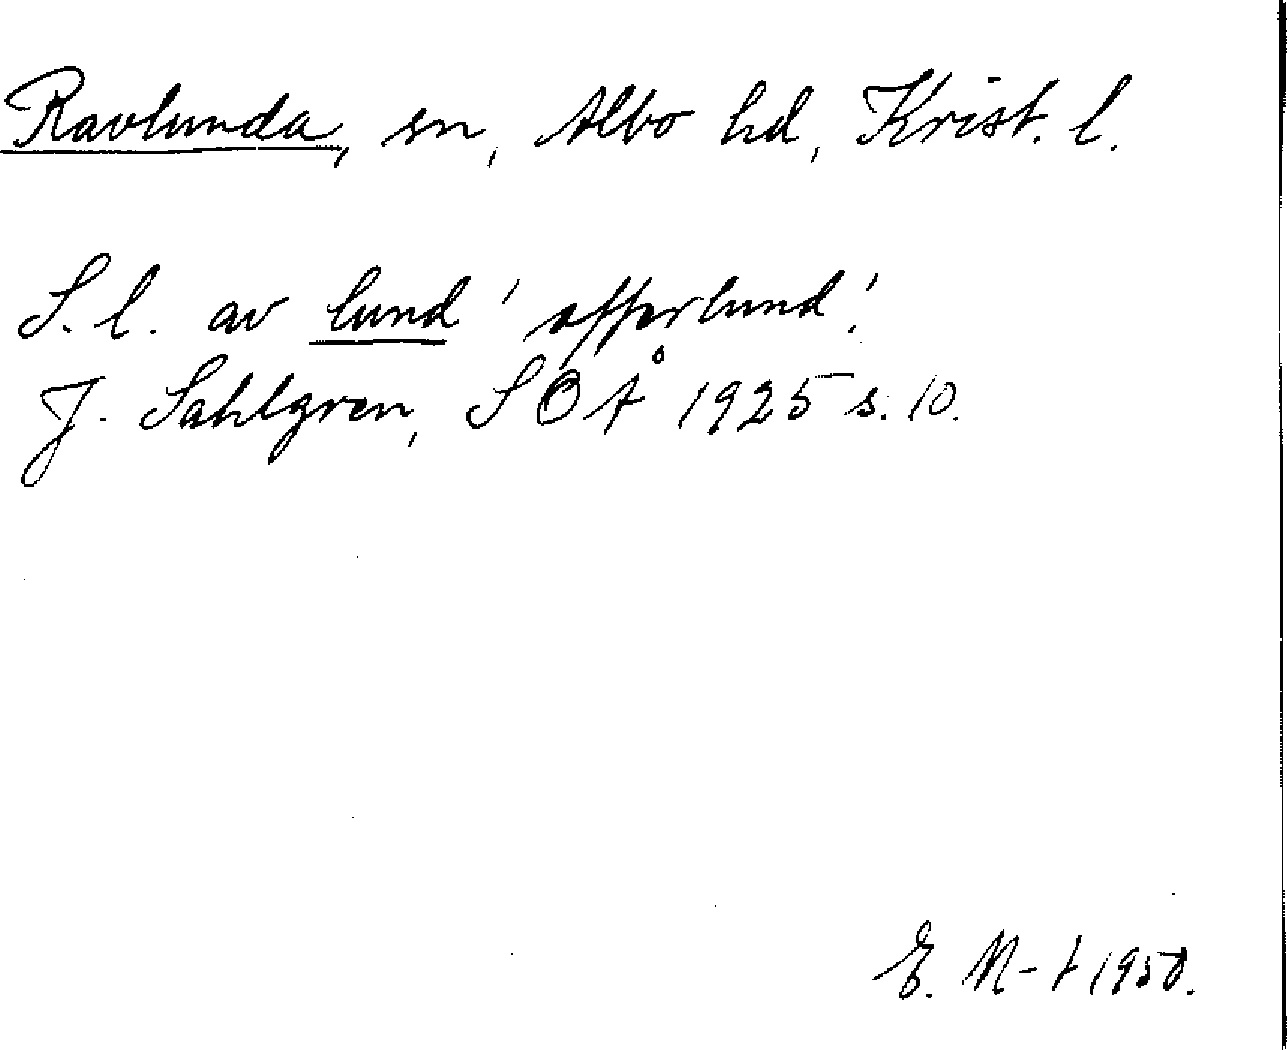 Ravlunda, sn, Albo hd, Krist. l.
S. l. av lund 'offerlund'.
J. Sahlgren, SOÅ 1925 s. 10.
E. N-t 1950.